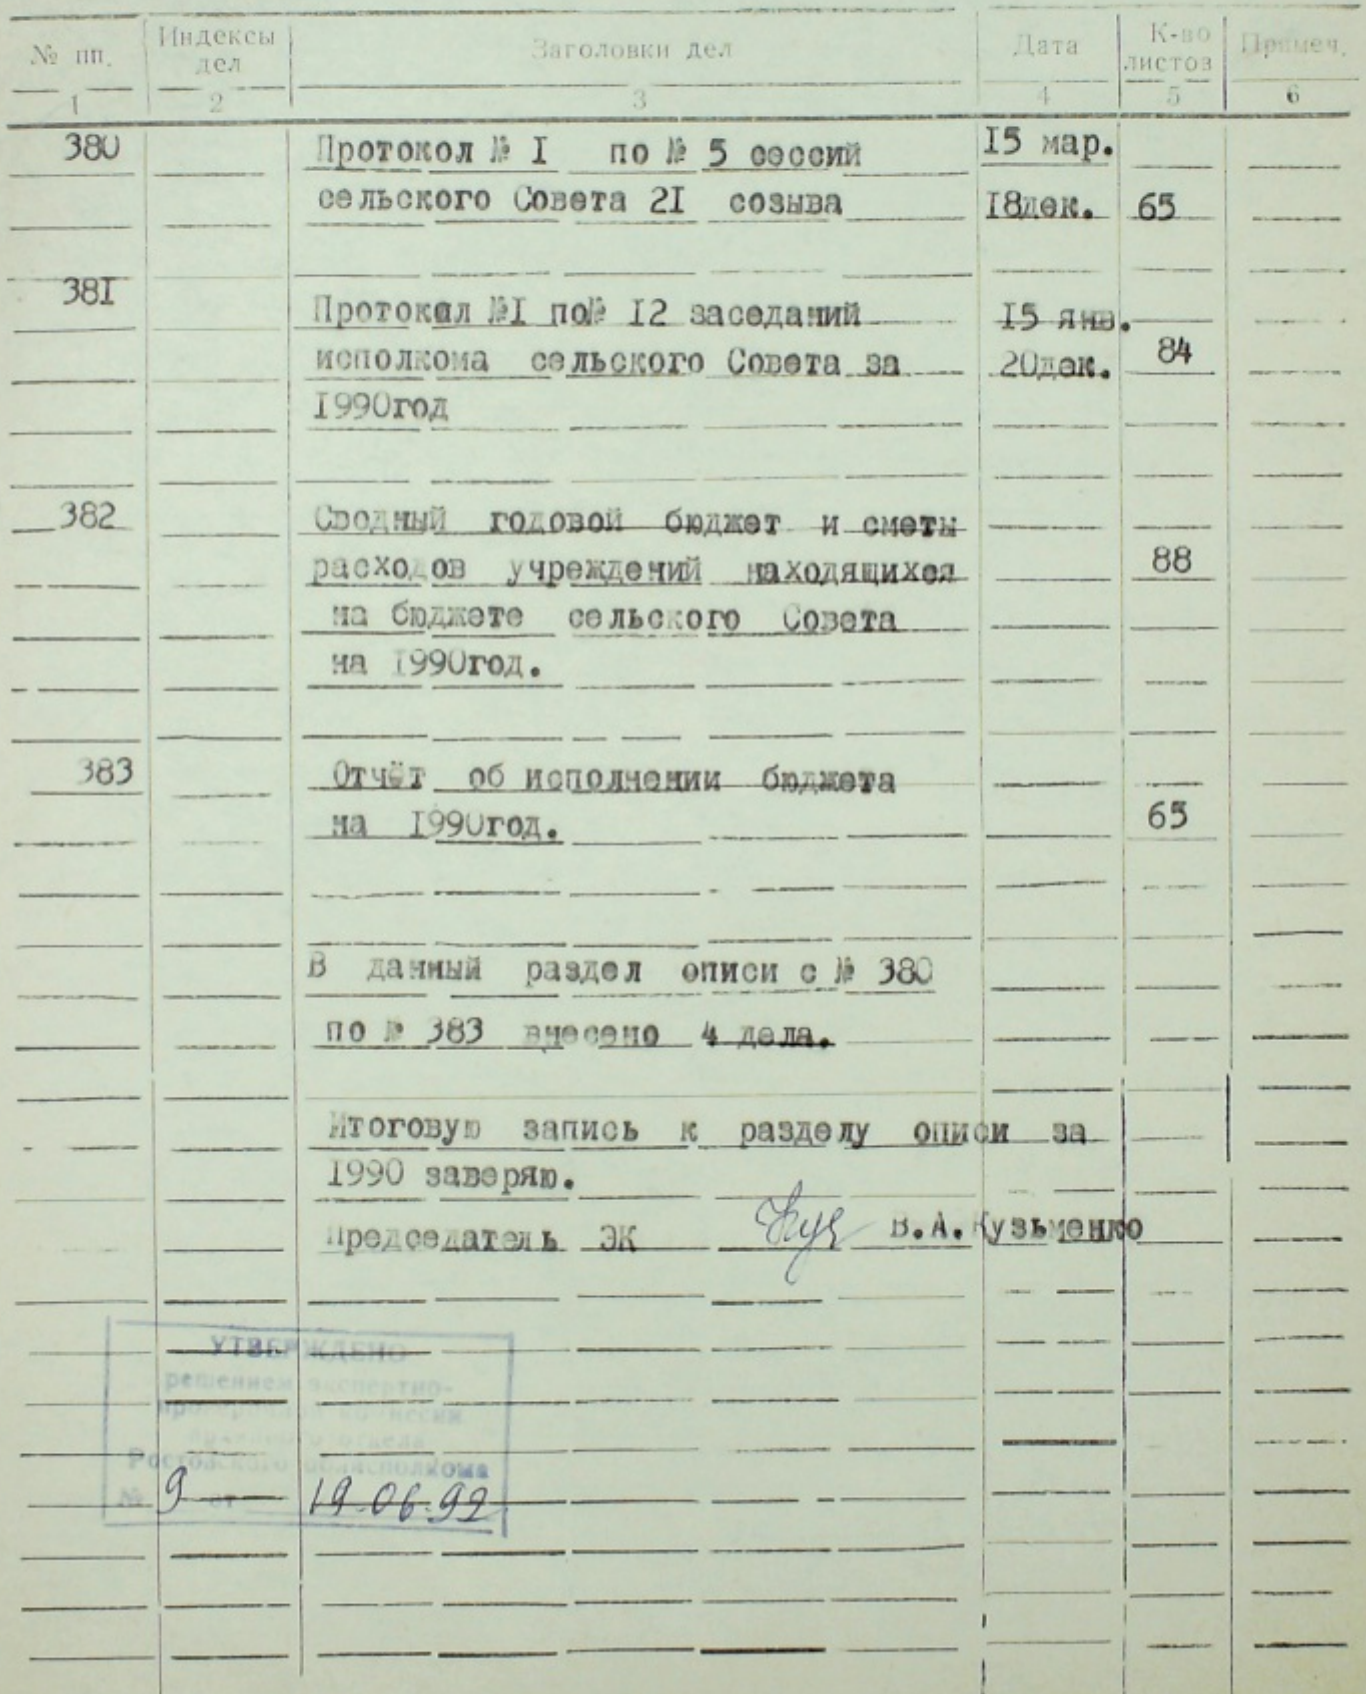 № пп. Индексы дел Заголовки дел Дата К-во листов Примеч.
1 2 3 4 5 6
380 Протокол № I по № 5 сессий 15 мар.
сельского Совета 2I созыва 18дек. 65
38I
Протокол №I по№ I2 заседаний I5 янв.
исполкома сельского Совета за 20дек. 84
I990год
382 Сводный годовой бюджет и сметы
расходов учреждений находящихся 88
на бюджете сельского Совета
на I990год.
383 Отчёт об исполнении бюджета
на I990год. 65
В данный раздел описи с № 380
по № 383 внесено 4 дела.
Итоговую запись к разделу описи за
I990 заверяю.
Председатель ЭК В.А.Кузьменко
УТВЕРЖДЕНО
решением экспертно-
проверочной комиссии
архивного отдела
Ростовского облисполкома
№ 9 от 19.06.92